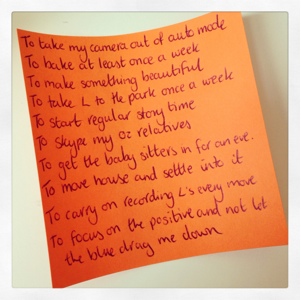 To take my camera out of auto mode
To bake at least once a week
To make something beautiful
To take L to the park once a week
To start regular story time
To skype my oz relatives
To get the baby sitters in for an eve.
To move house and settle into it
To carry on recording L's every move
To focus on the positive and not let
the blue drag me down